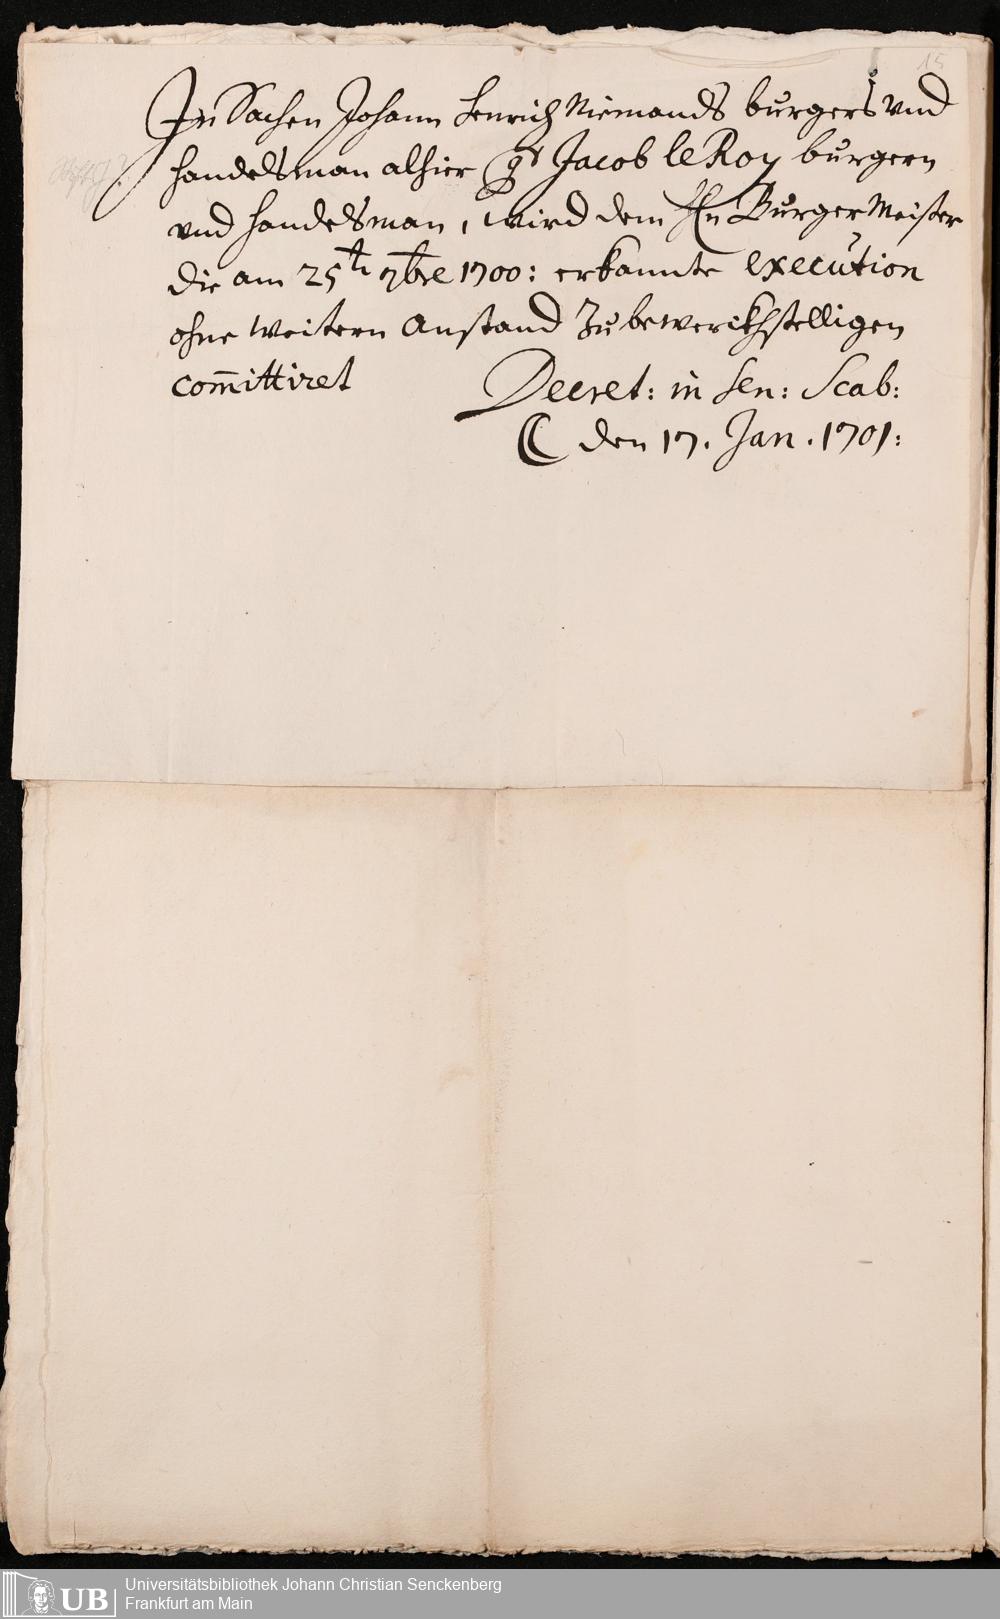 15
In Sachen Johann Henrich Niemands burgers und
handelsman alhier Ctr Jacob le Roy burgern
und handelsman, wird dem Hn Burger Meister
die am 25ten 7bre 1700: erkannte execution
ohne weitern Anstand Zu bewerckhstelligen
com̄ittiret
Decret: in Sen: Scab:
☾ den 17. Jan. 1701:
UB
Universitätsbibliothek Johann Christian Senckenberg
Frankfurt am Main